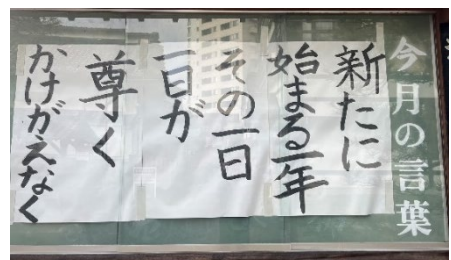 今月の言葉
新たに
始まる一年
その一日
一日が
尊く
かけがえなく